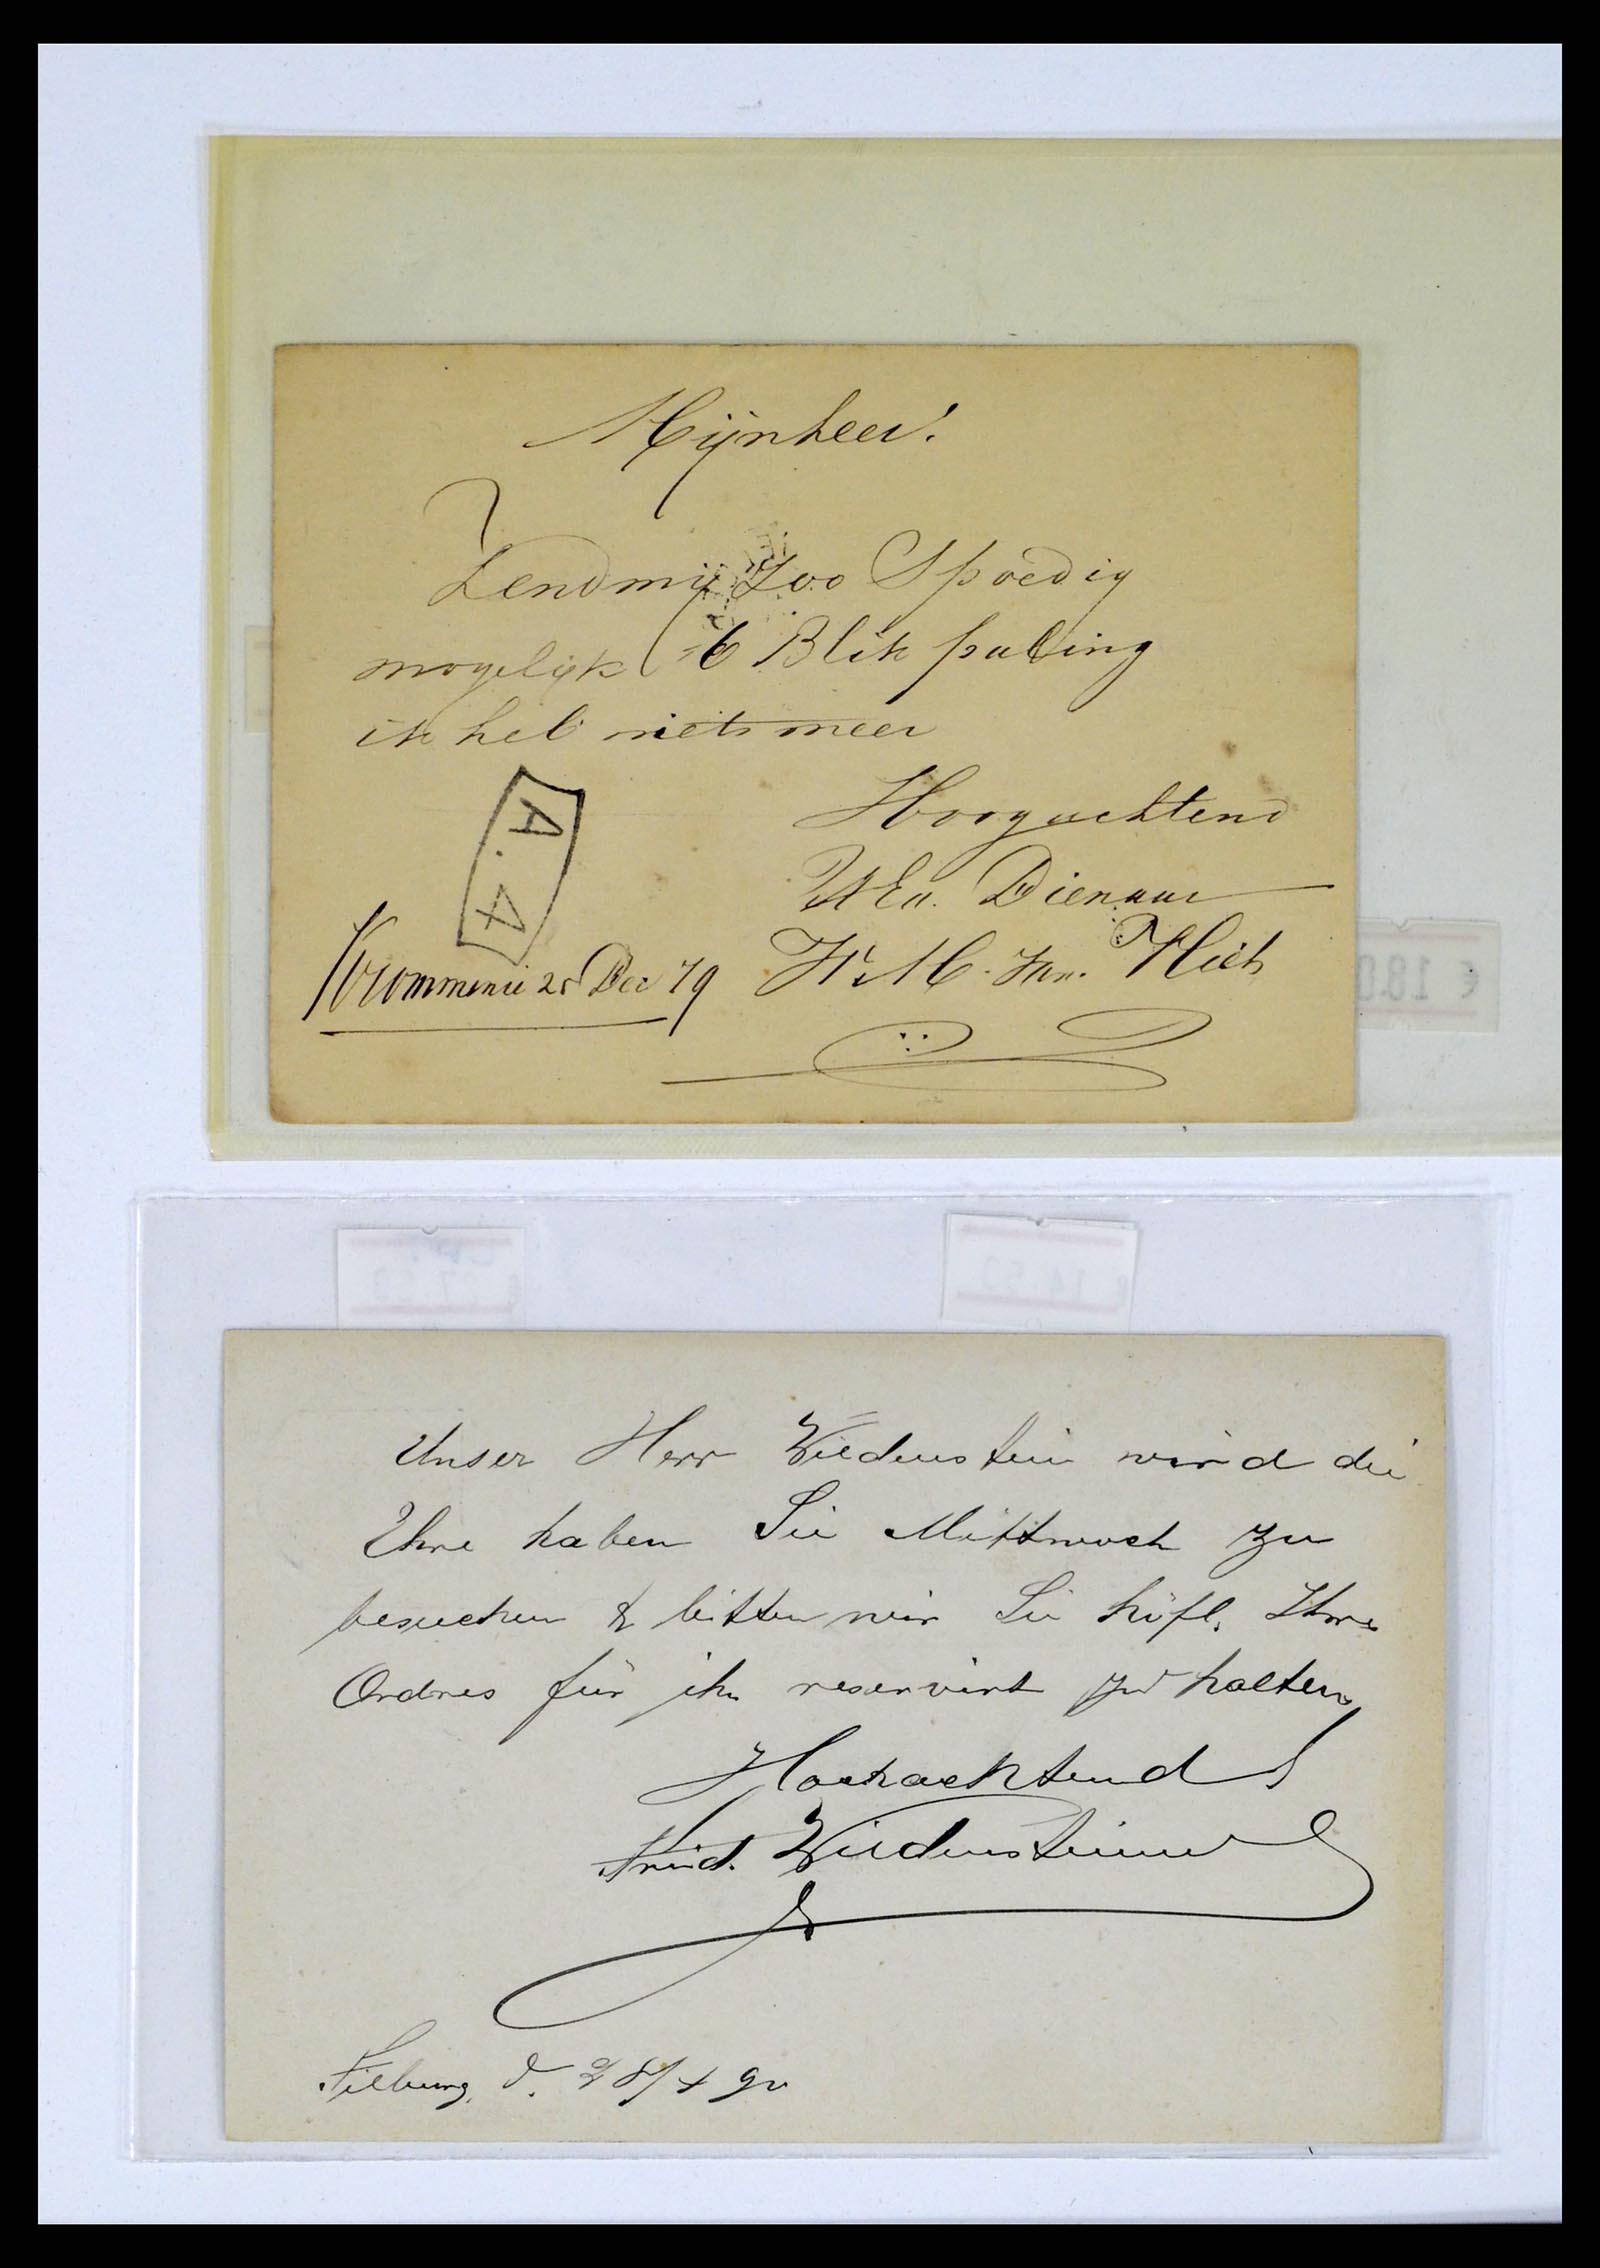 Mijnheer!
Zend mij Zoo Spoedig
mogelijk 6 Blik paling
ik heb niets meer
Hoogachtend
UEd. Dienaar
A. 4
Krommenie 28 Dec 79
€ 18.0
Unser Herr Wiedenstein wird die
Ehre haben Sie Mittwoch zu
besuchen & bitten wir Sie höfl. Ihre
Ordres für ihn reservirt zu halten,
Hochachtend
Wiedenstein
Tilburg, d. 28/4 90